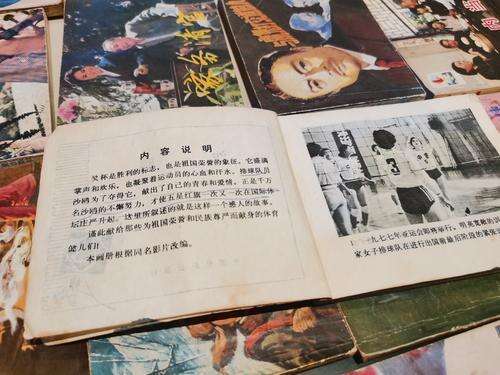 内容说明
奖杯是胜利的标志，也是祖国荣誉的象征。它盛满
掌声和欢乐，也凝聚着运动员的心血和汗水。排球队员
沙鸥为了夺得它，献出了自己的青春和爱情。正是千万
名沙鸥的不懈努力，才使五星红旗一次又一次在国际体
坛庄严升起。这里所叙述的就是这样一个感人的故事。
谨此献给那些为祖国荣誉和民族尊严而献身的体育
健儿们！
本画册根据同名影片改编。
3
1 一九七七年亚运会即将举行，
家女子排球队在进行出国前最后阶段的紧张